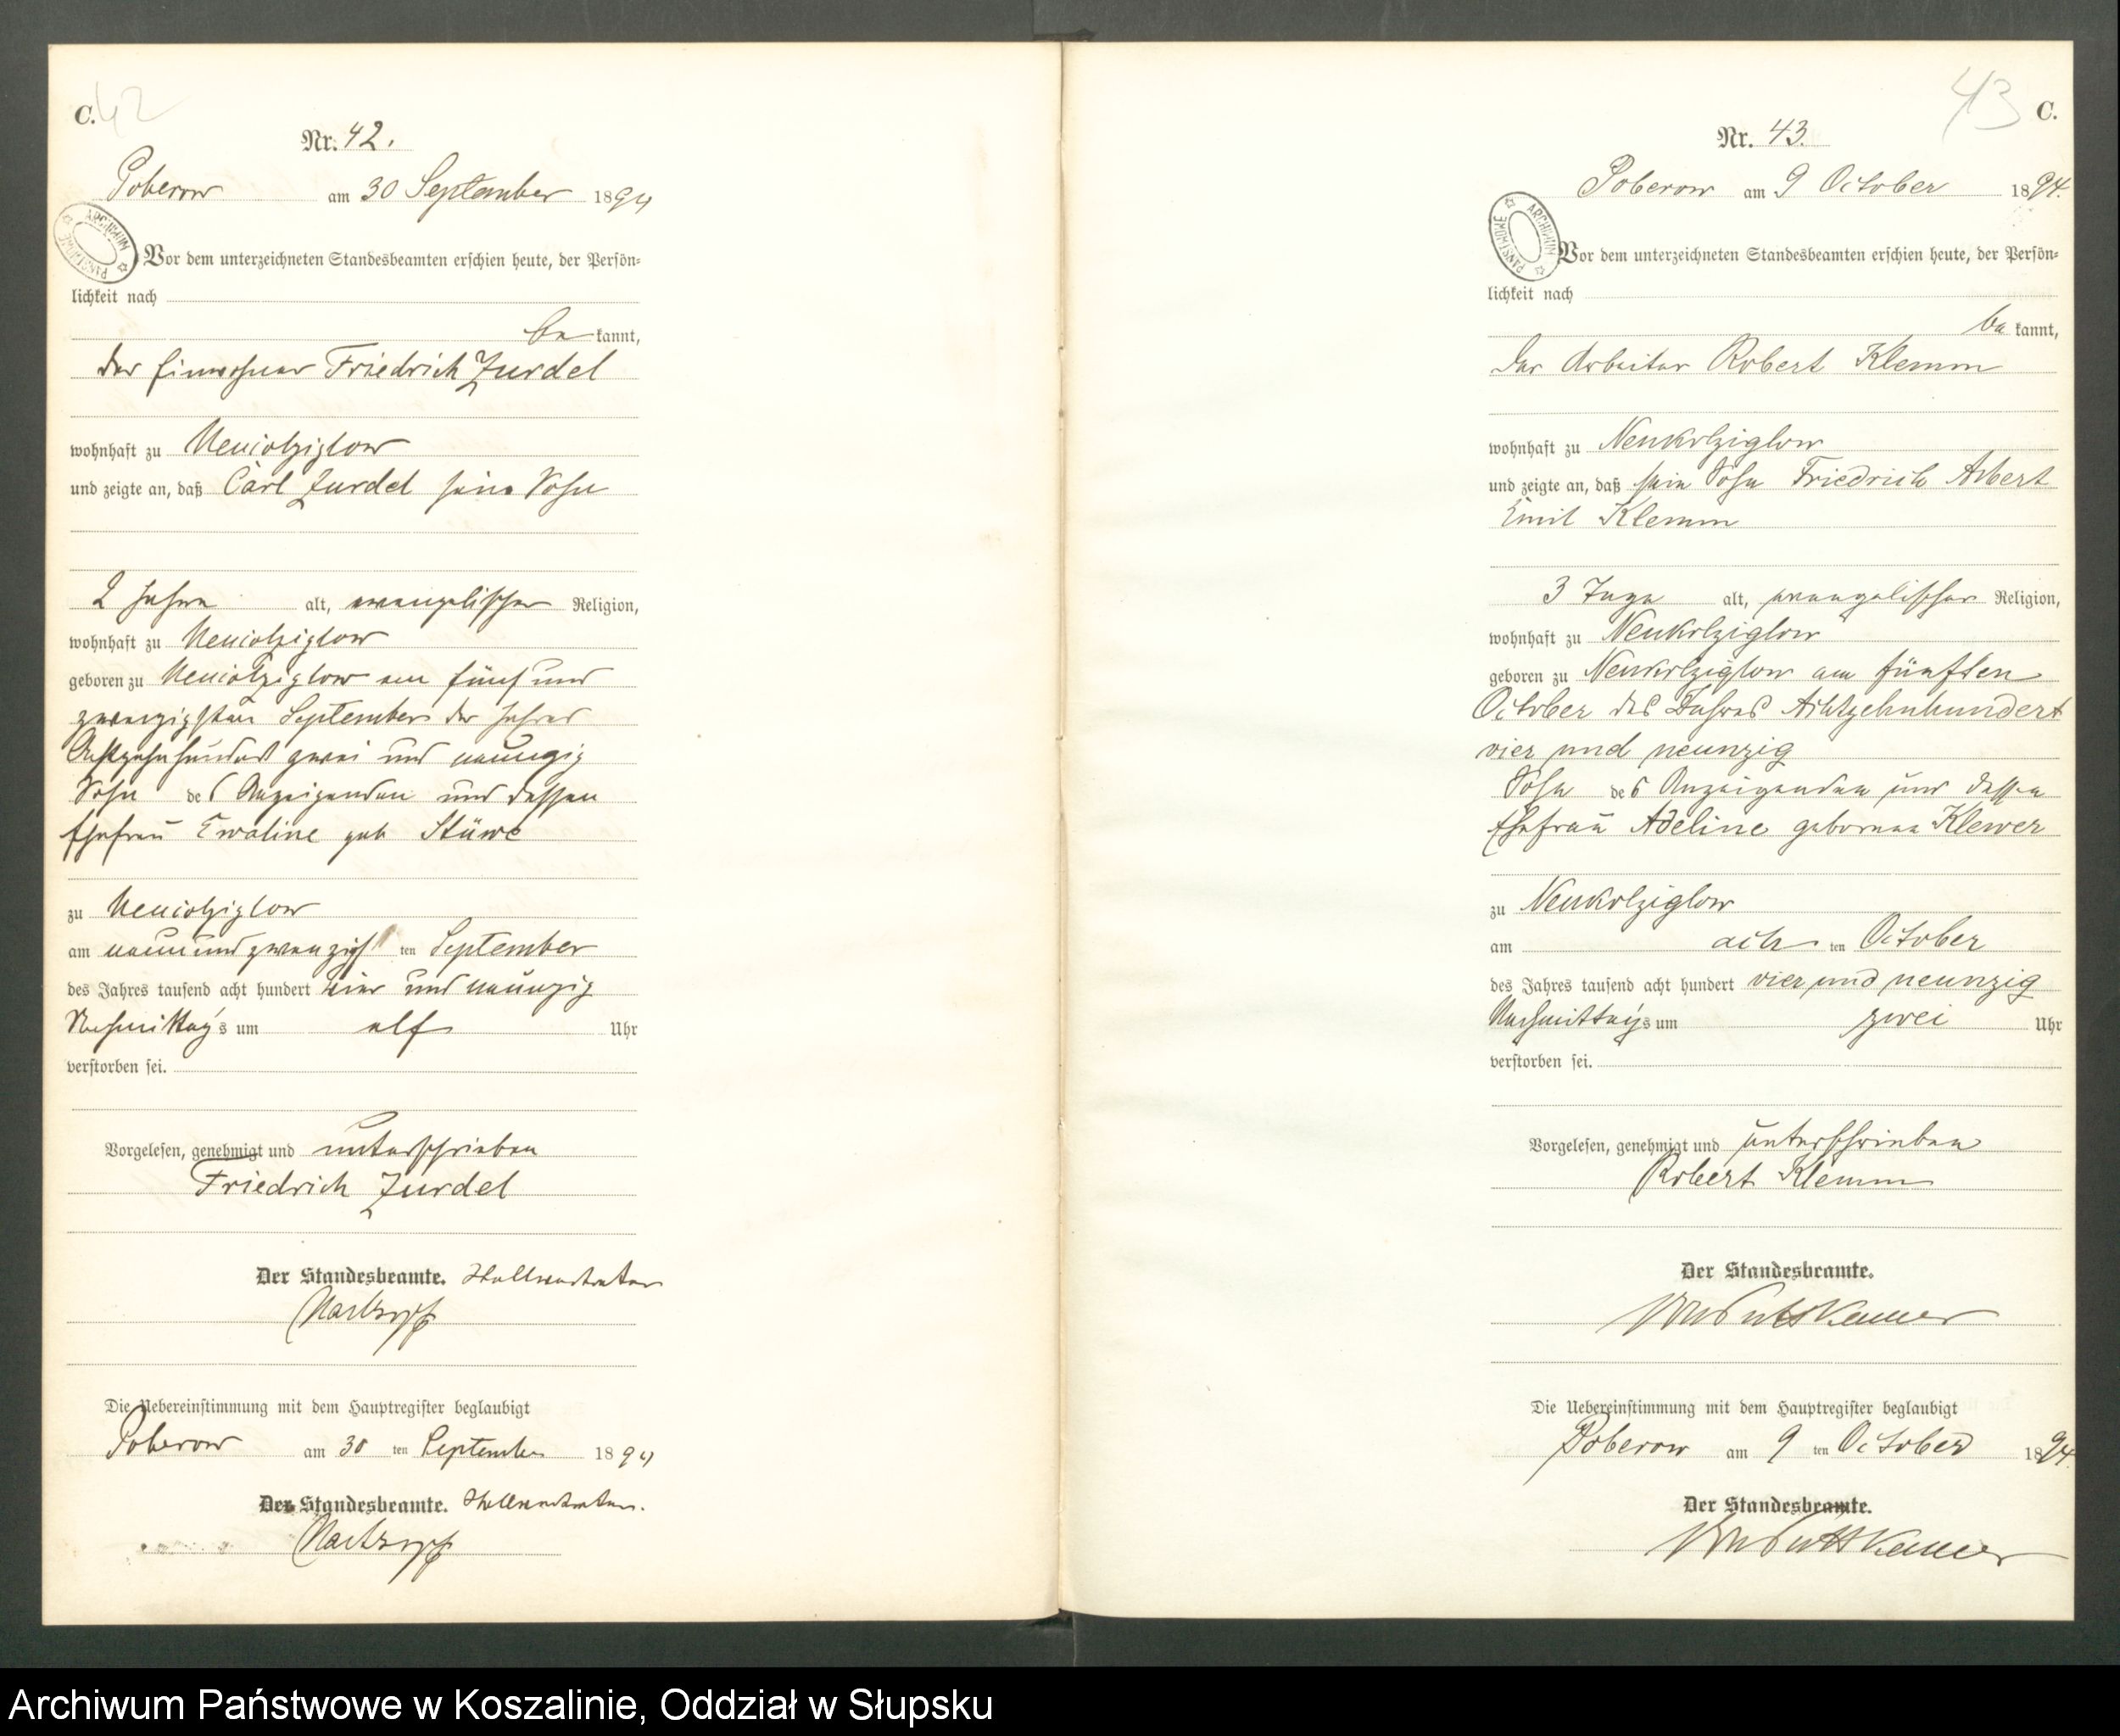 C. 42
Nr. 42.
Poberow am 30 September 1894
ARCHIWUM PAŃSTWOWE
Vor dem unterzeichneten Standesbeamten erschien heute, der Persön=
lichkeit nach
be kannt,
der Einwohner Friedrich Zurdel
wohnhaft zu Neucolziglow
und zeigte an, daß Carl Zurdel sein Sohn
2 Jahre alt, evangelischer Religion,
wohnhaft zu Neucolziglow
geboren zu Neucolziglow am fünf und
zwanzigsten September der Jahres
Achtzehnhundert zwei und neunzig
Sohn des Anzeigenden und dessen
Ehefrau Ewaline geb Stüwe
zu Neucolziglow
am neunundzwanzigsten September
des Jahres tausend acht hundert vier und neunzig
Nachmittags um elf Uhr
verstorben sei.
Vorgelesen, genehmigt und unterschrieben
Friedrich Zurdel
Der Standesbeamte. Stellvertreter
Die Uebereinstimmung mit dem Hauptregister beglaubigt
Poberow am 30 ten September 1894
Der Standesbeamte. Stellvertreter.
43 C.
Nr. 43.
Poberow am 9 October 1894.
ARCHIWUM PAŃSTWOWE
Vor dem unterzeichneten Standesbeamten erschien heute, der Persön=
lichkeit nach
be kannt,
der Arbeiter Robert Klemm
wohnhaft zu Neukolziglow
und zeigte an, daß sein Sohn Friedrich Albert
Emil Klemm
3 Tage alt, evangelischer Religion,
wohnhaft zu Neukolziglow
geboren zu Neukolziglow am fünften
October des Jahres Achtzehnhundert
vier und neunzig
Sohn des Anzeigenden und dessen
Ehefrau Adeline geborene Klewer
zu Neukolziglow
am achten October
des Jahres tausend acht hundert vier und neunzig
Nachmittags um zwei Uhr
verstorben sei.
Vorgelesen, genehmigt und unterschrieben
Robert Klemm
Der Standesbeamte.
von Puttkamer
Die Uebereinstimmung mit dem Hauptregister beglaubigt
Poberow am 9 ten October 1894.
Der Standesbeamte.
von Puttkamer
Archiwum Państwowe w Koszalinie, Oddział w Słupsku